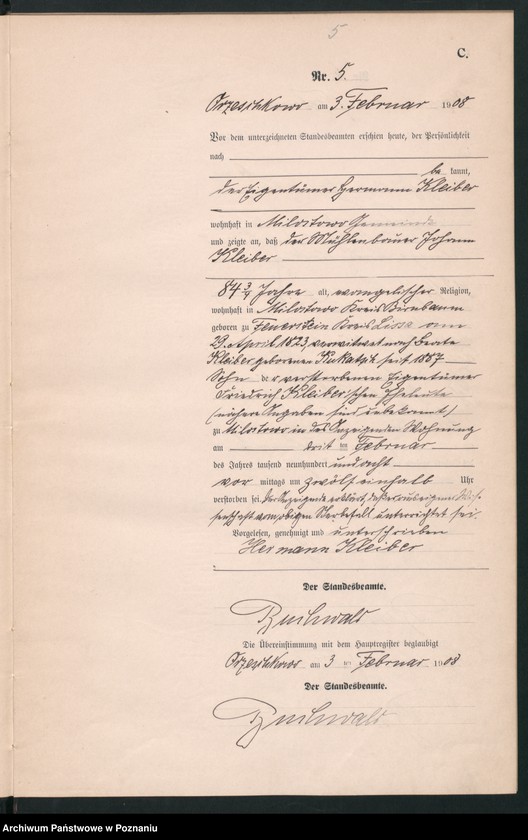 5
C.
Nr. 5.
Orzeschkowo am 3. Februar 1908
Vor dem unterzeichneten Standesbeamten erschien heute, der Persönlichkeit
nach
be kannt,
der Eigentümer Hermann Kleiber
wohnhaft in Milostowo Gemeinde
und zeigte an, daß der Mühlenbauer Johann
Kleiber
84 3/4 Jahre alt, evangelischer Religion,
wohnhaft in Milostowo Kreis Birnbaum
geboren zu Feuerstein Kreis Lissa am
29. April 1823, verwitwet nach Beate
Kleiber geborenen seit 1887
Sohn der verstorbenen Eigentümer
Friedrich Kleiber'schen Eheleute
(nähere Angaben sind unbekannt)
zu Milostowo in des Anzeigenden Wohnung
am drit ten Februar
des Jahres tausend neunhundert und acht
vor mittags um zwölf einhalb Uhr
verstorben sei. Der Anzeigende erklärt, daß er aus eigener Wis-
senschaft vom obigen Sterbefall unterrichtet sei.
Vorgelesen, genehmigt und unterschrieben
Hermann Kleiber
Der Standesbeamte.
Buchwald
Die Übereinstimmung mit dem Hauptregister beglaubigt
Orzeschkowo am 3 ten Februar 1908
Der Standesbeamte.
Buchwald
Archiwum Państwowe w Poznaniu